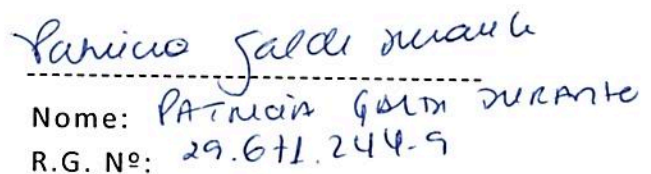 Patricia Galdi Durante
Nome: PATRICIA GALDI DURANTE
R.G. Nº: 29.671.244-9